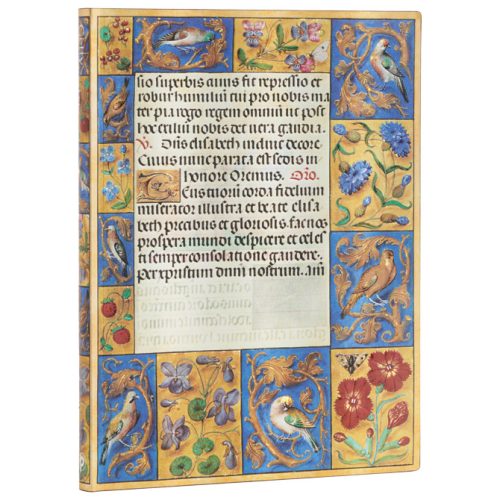 sio superbis cuius fit repressio et
robur humiliũ tui pro nobis ma
ter pia rogo regem omniũ ut post
hoc exiliũ nobis det vera gaudia.
V. Dñs elisabeth induit decore.
Cuius nunc parata est sedis in
honore Oremus. Oro.
Deus tuorũ corda fidelium
miserator illustra et beate elisa
beth precibus et gloriosis fac nos
prospera mundi despicere et celes
ti semper consolatione gaudere.
Per xpristum dnm nostrum. am